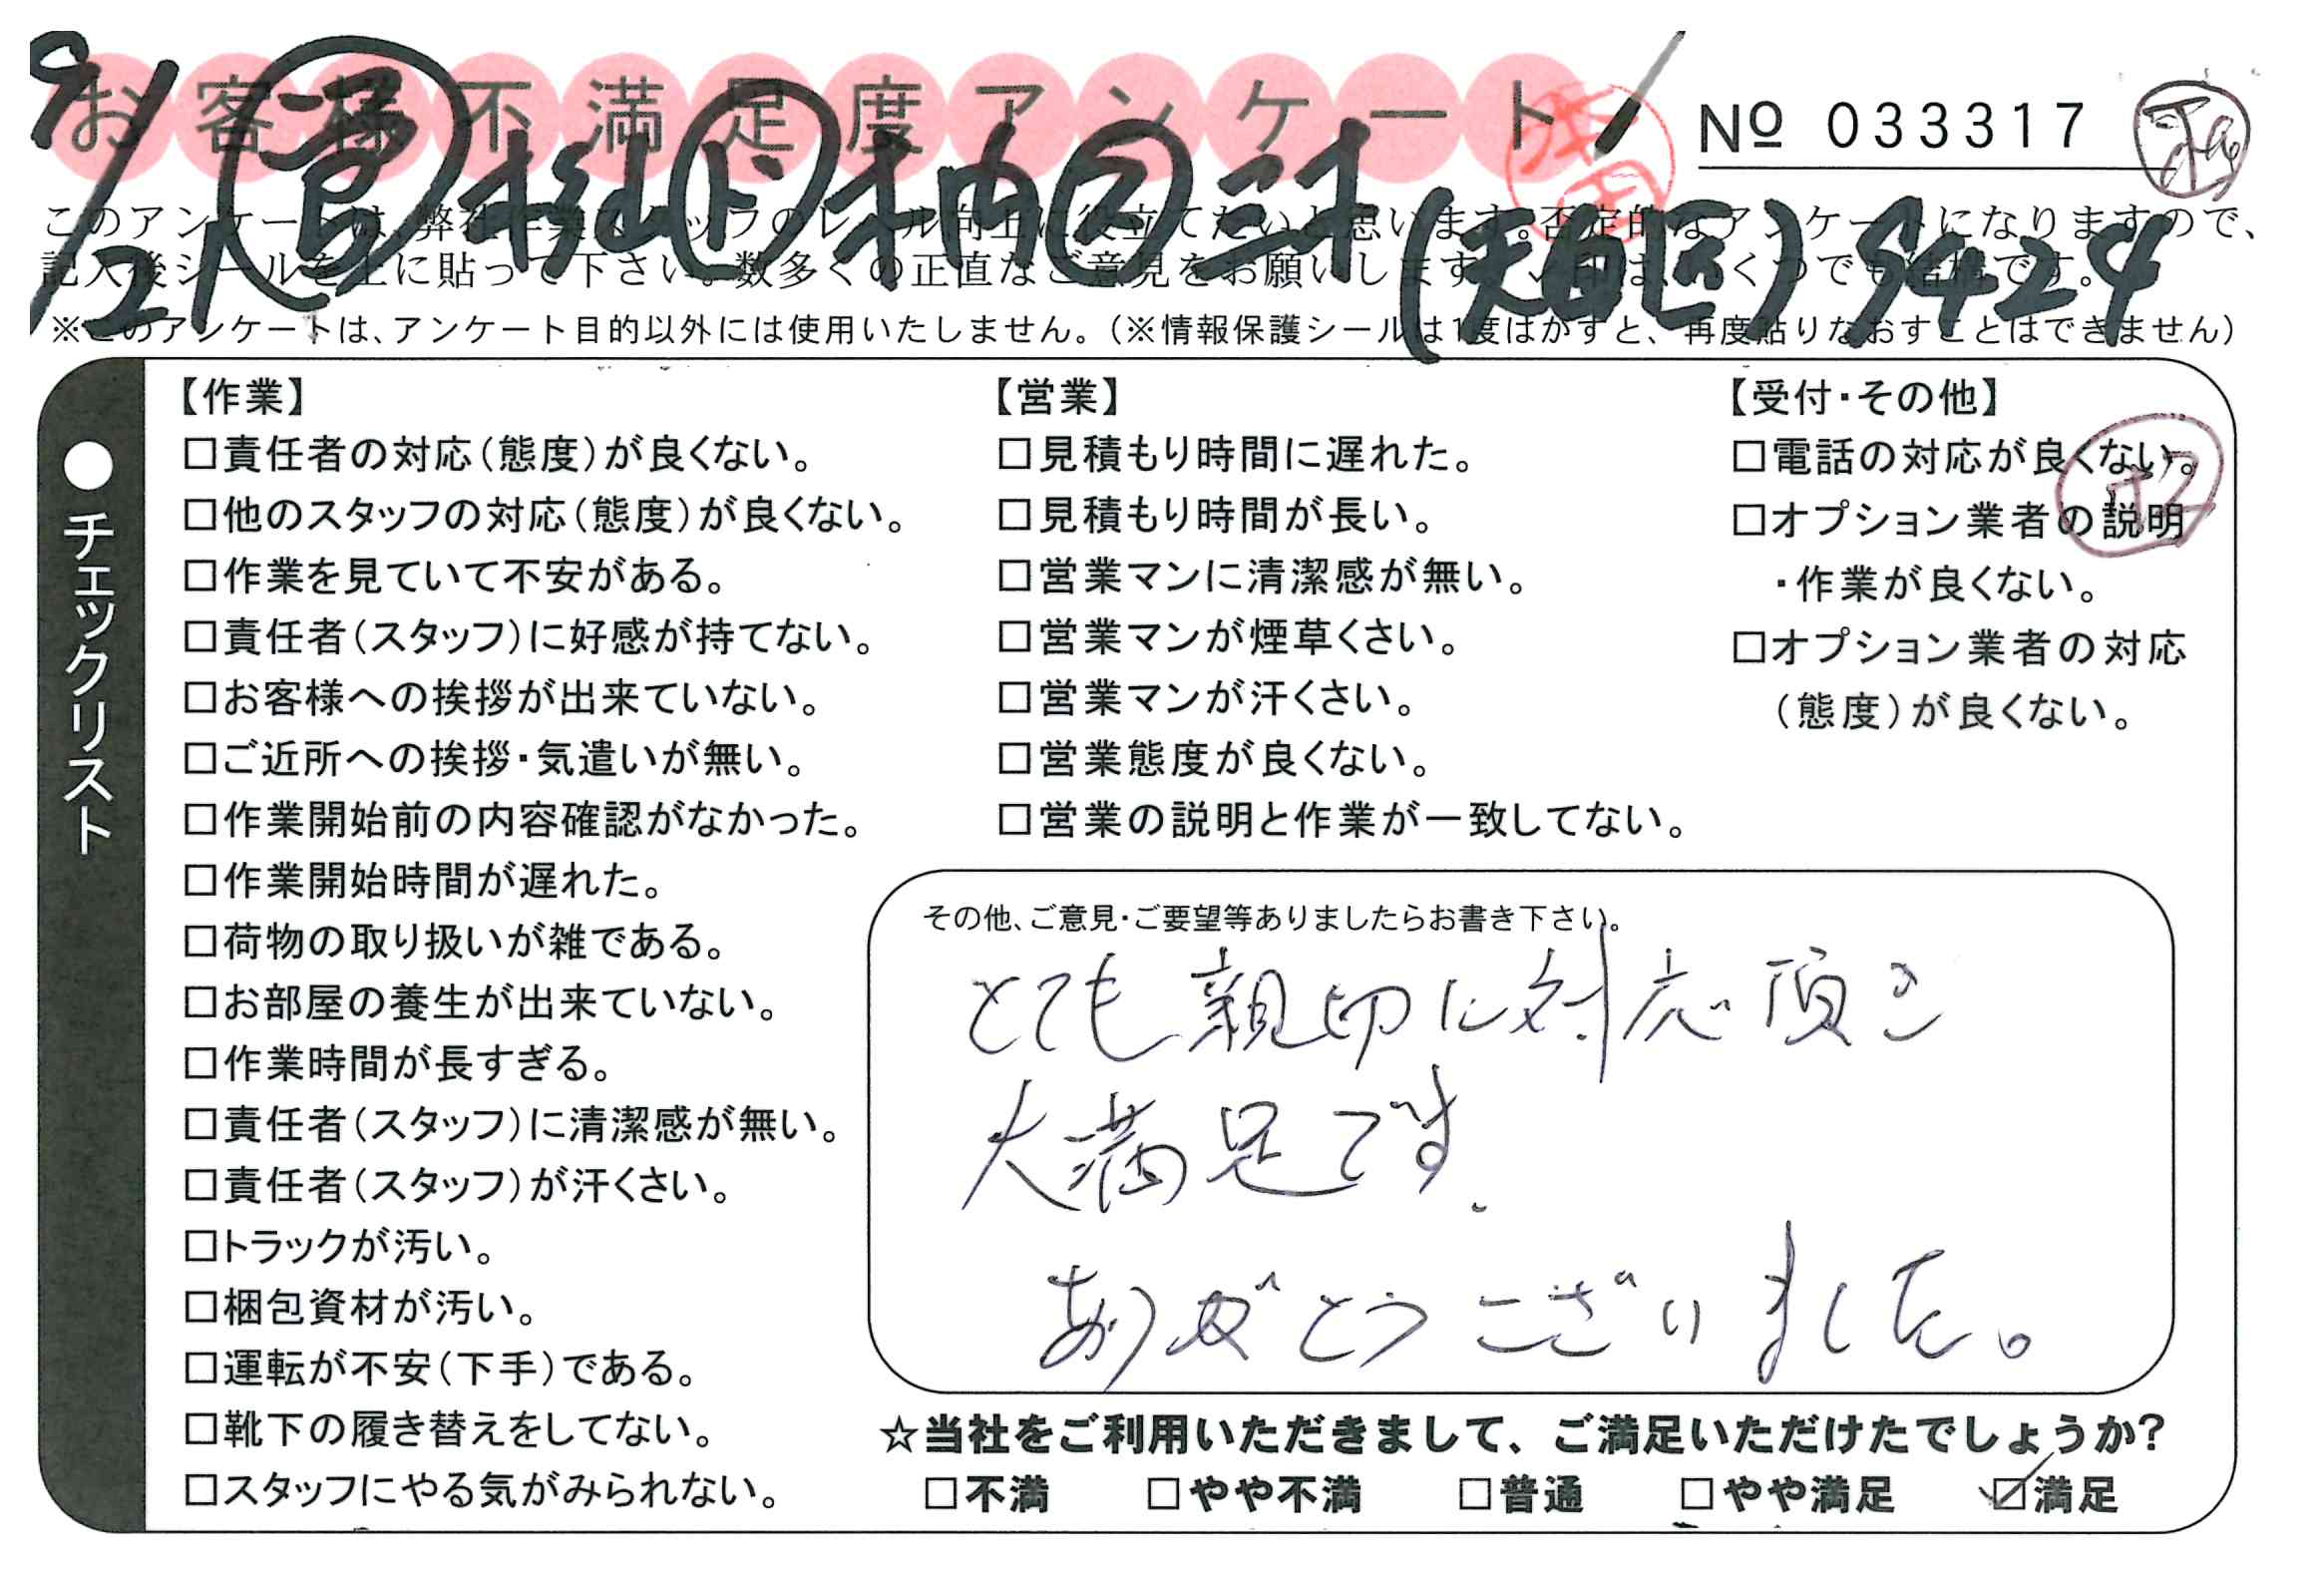 お客様不満足度アンケート
№ 033317
9/21 営 杉山 ト 柄 2 三村 (天白区) S424
このアンケートは、弊社作業スタッフのレベル向上に役立てたいと思います。否定的なアンケートになりますので、
記入後シールを上に貼って下さい。数多くの正直なご意見をお願いします。✓印は、いくつでも結構です。
※このアンケートは、アンケート目的以外には使用いたしません。(※情報保護シールは1度はがすと、再度貼りなおすことはできません)
●チェックリスト
【作業】
□責任者の対応(態度)が良くない。
□他のスタッフの対応(態度)が良くない。
□作業を見ていて不安がある。
□責任者(スタッフ)に好感が持てない。
□お客様への挨拶が出来ていない。
□ご近所への挨拶・気遣いが無い。
□作業開始前の内容確認がなかった。
□作業開始時間が遅れた。
□荷物の取り扱いが雑である。
□お部屋の養生が出来ていない。
□作業時間が長すぎる。
□責任者(スタッフ)に清潔感が無い。
□責任者(スタッフ)が汗くさい。
□トラックが汚い。
□梱包資材が汚い。
□運転が不安(下手)である。
□靴下の履き替えをしてない。
□スタッフにやる気がみられない。
【営業】
□見積もり時間に遅れた。
□見積もり時間が長い。
□営業マンに清潔感が無い。
□営業マンが煙草くさい。
□営業マンが汗くさい。
□営業態度が良くない。
□営業の説明と作業が一致してない。
【受付・その他】
□電話の対応が良くない。
□オプション業者の説明
・作業が良くない。
□オプション業者の対応
(態度)が良くない。
その他、ご意見・ご要望等ありましたらお書き下さい。
とても親切に対応頂き
大満足です.
ありがとうございました。
☆当社をご利用いただきまして、ご満足いただけたでしょうか?
□不満 □やや不満 □普通 □やや満足 ☑満足